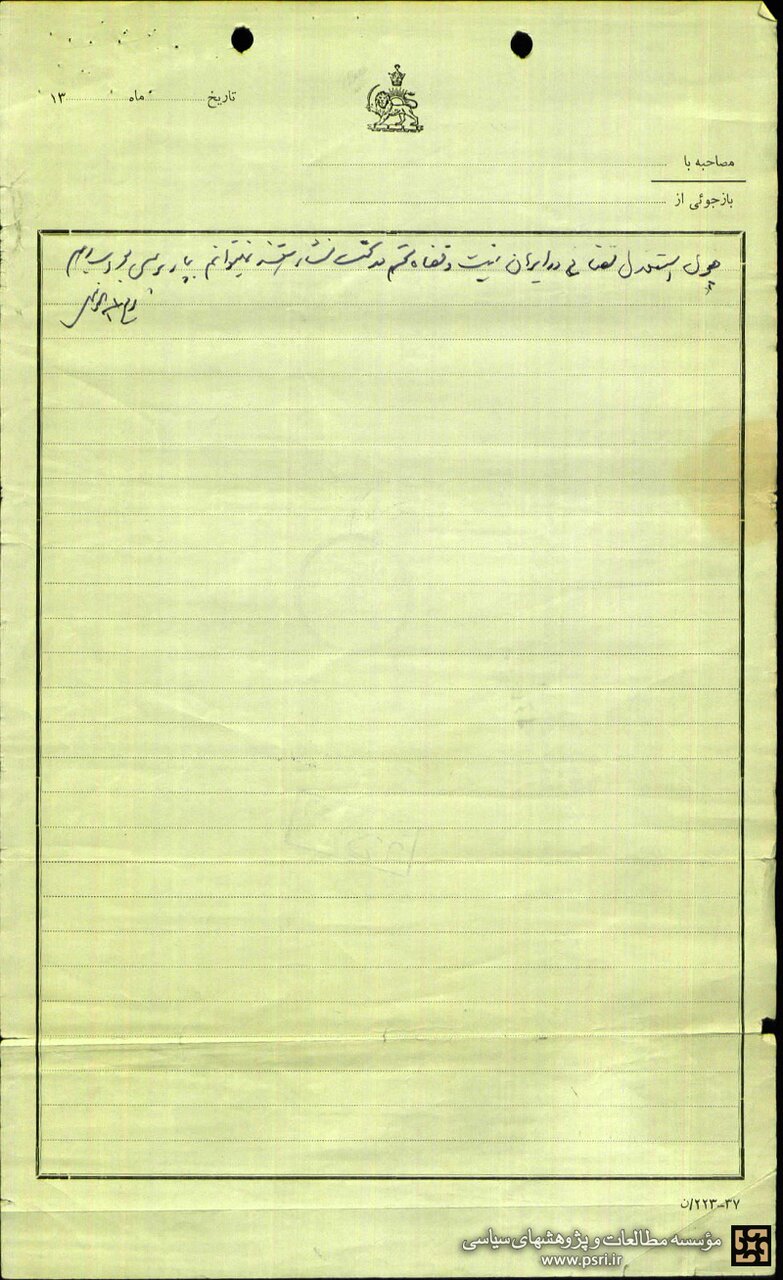 تاریخ ............ ماه ............ ۱۳
مصاحبه با
بازجوئی از
چون استقلال قضائی در ایران نیست و قضاة محترم در تحت فشار هستند نمیتوانم به بازپرسی جواب بدهم
روح اله الخمینی
۳۷-۲۲۳/ن
مؤسسه مطالعات و پژوهشهای سیاسی
www.psri.ir